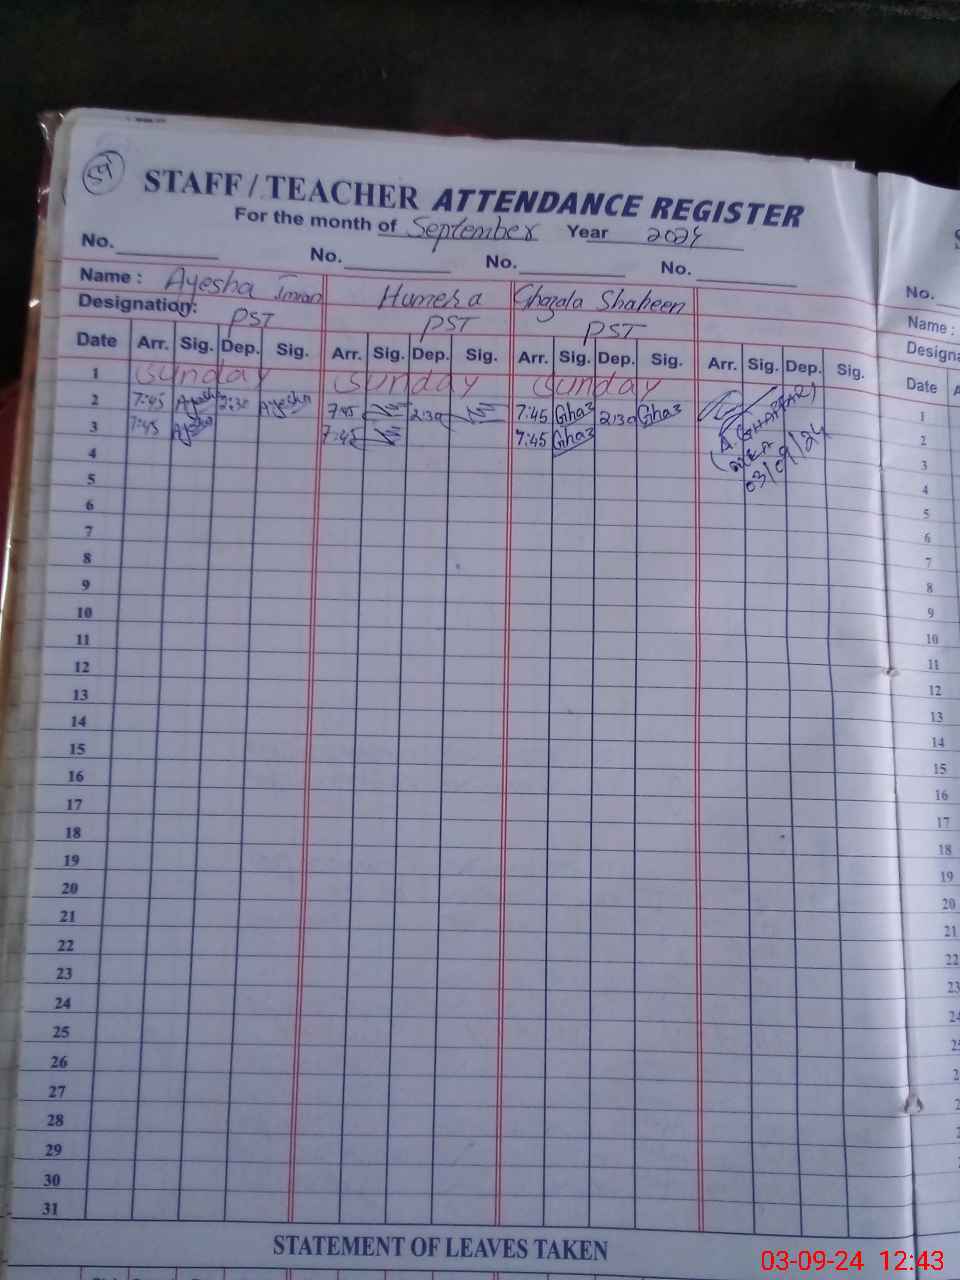 STAFF / TEACHER ATTENDANCE REGISTER
For the month of September Year 2024
No. No. No. No.
Name : Ayesha Imran Humera Ghazala Shaheen
Designation: PST PST PST
Date Arr. Sig. Dep. Sig. Arr. Sig. Dep. Sig. Arr. Sig. Dep. Sig. Arr. Sig. Dep. Sig.
1 Sunday Sunday Sunday
2 7:45 Ayesha 2:30 Ayesha 7:45 2:30 7:45 Ghaz 2:30 Ghaz
3 7:45 Ayesha 7:45 7:45 Ghaz
(A. GHAFFAR)
03/09/24
4
5
6
7
8
9
10
11
12
13
14
15
16
17
18
19
20
21
22
23
24
25
26
27
28
29
30
31
STATEMENT OF LEAVES TAKEN
No.
Name :
Date
1
2
3
4
5
6
7
8
9
10
11
12
13
14
15
16
17
18
19
20
21
22
03-09-24 12:43